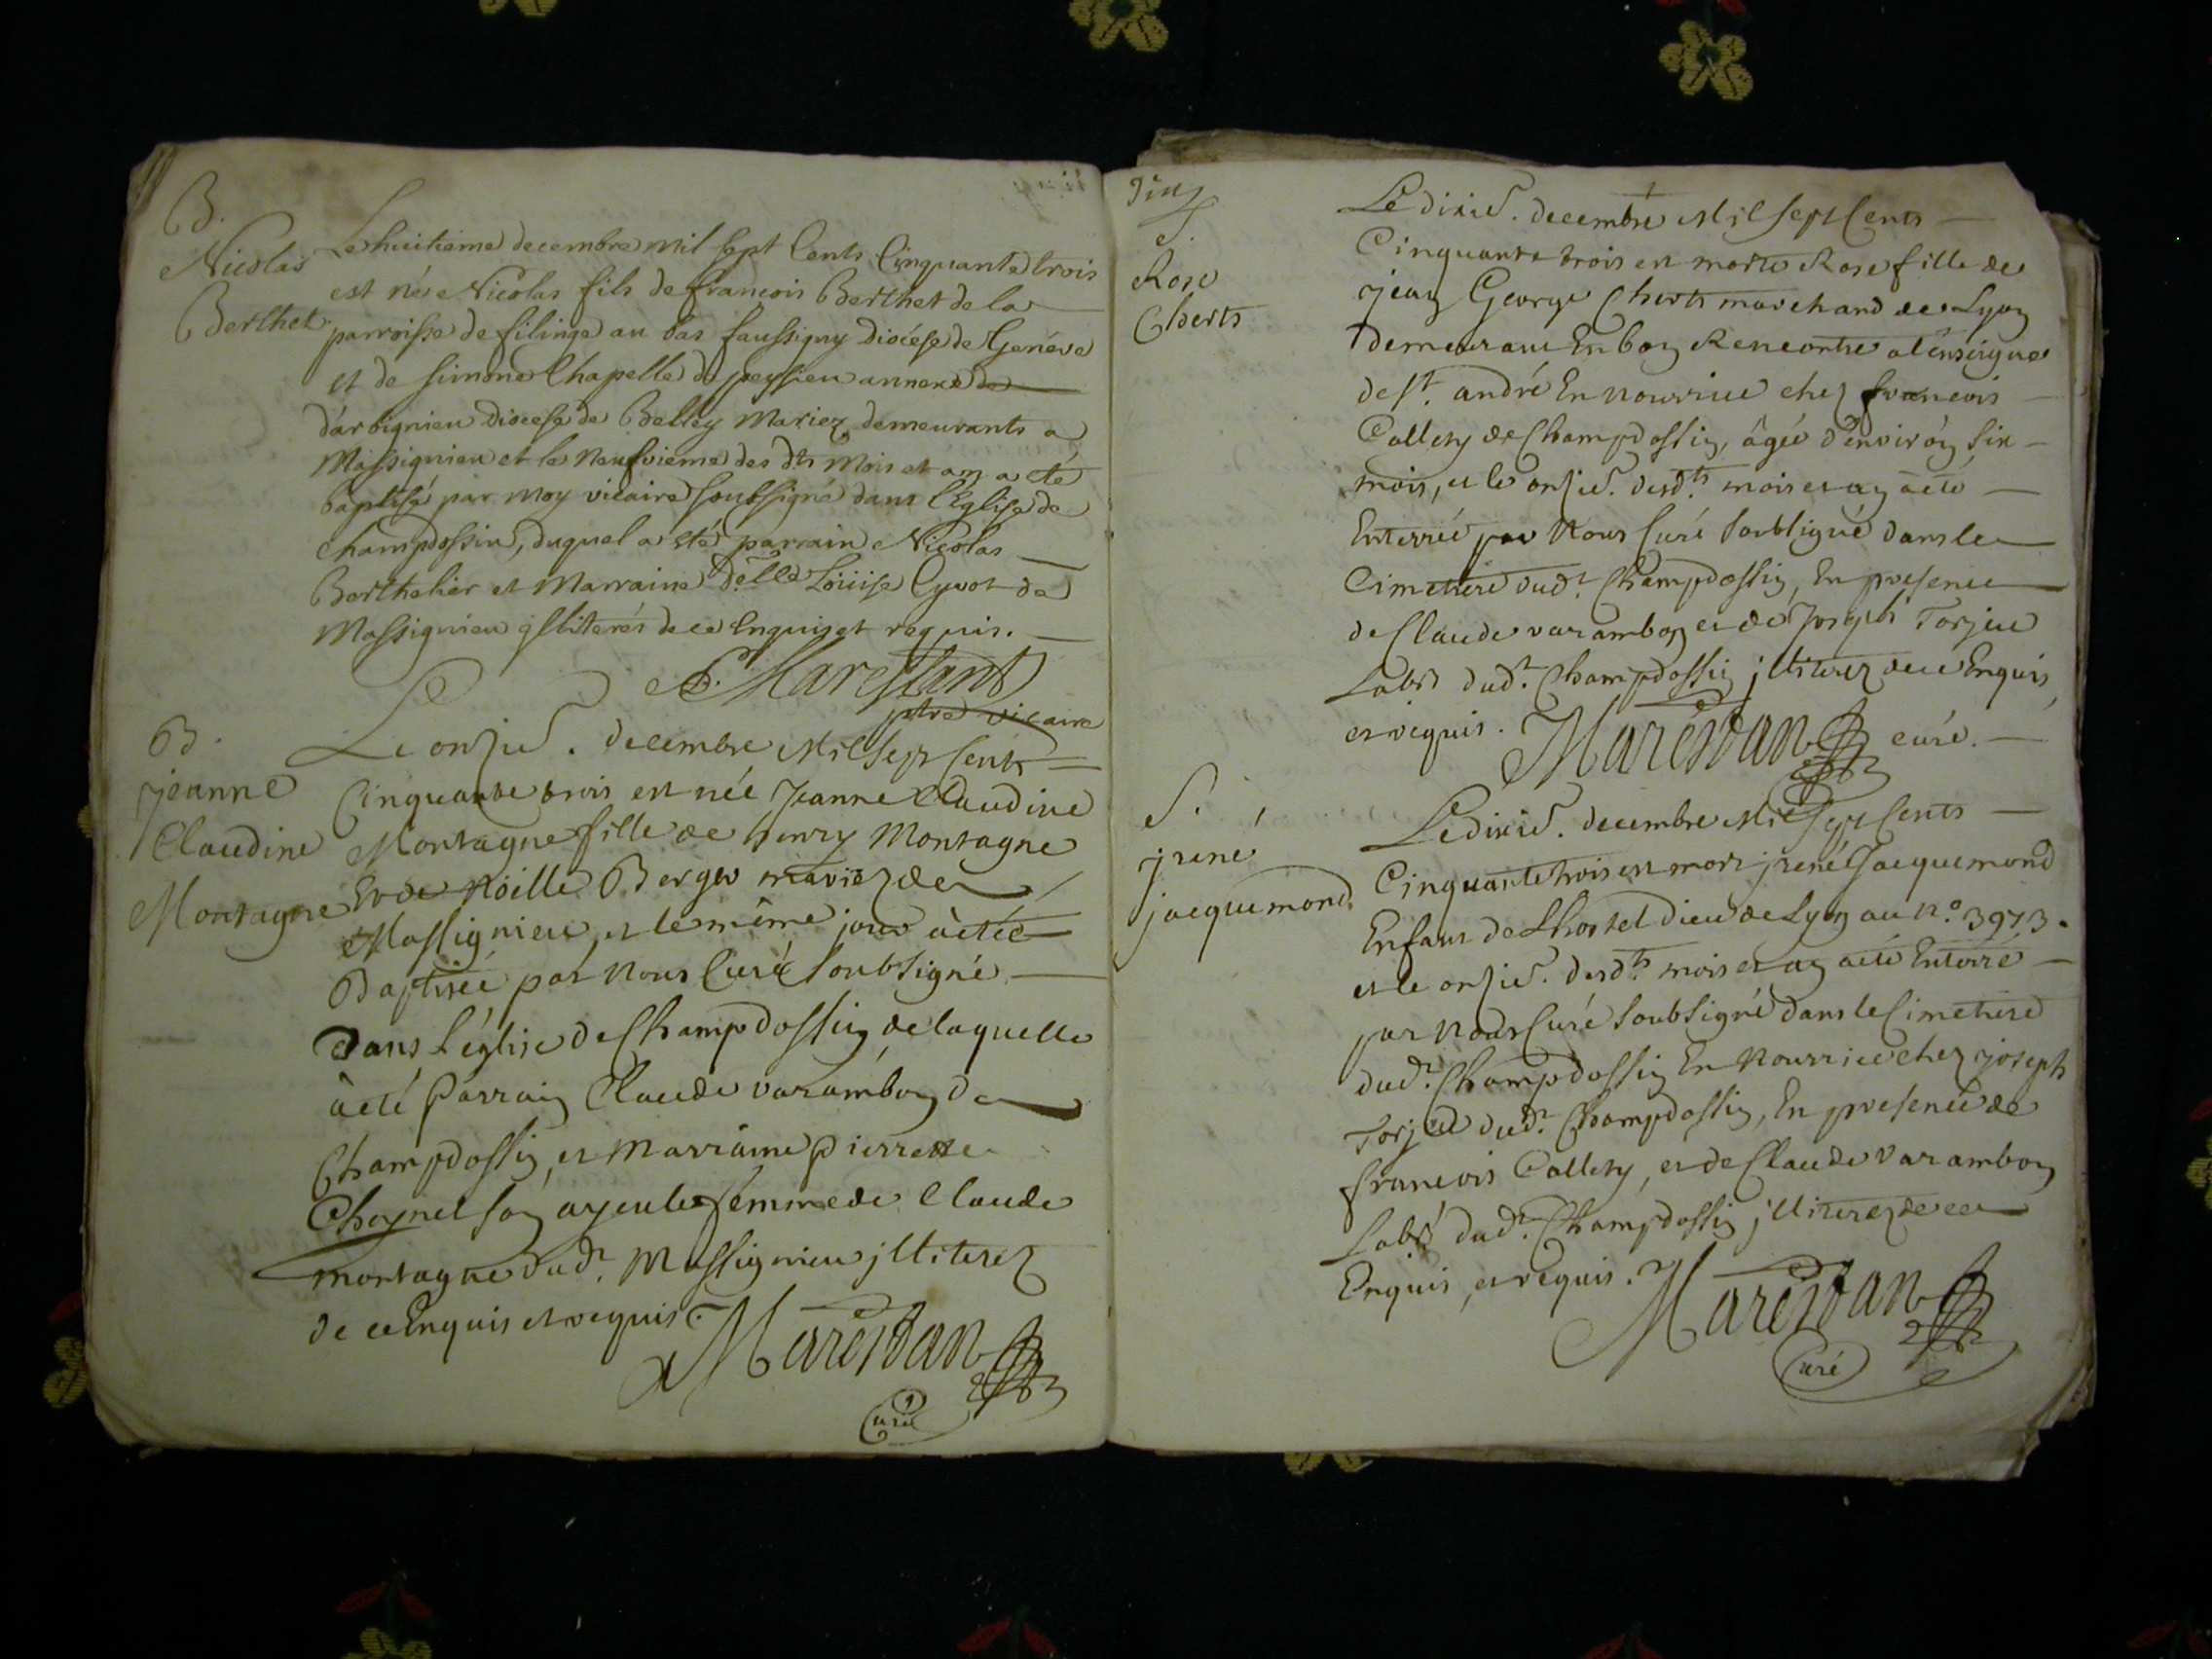 B.
Nicolas
Berthet
Le huitieme decembre mil sept Cents Cinquante trois
est né Nicolas fils de francois Berthet de la
parroisse de filinge au bas faussigny Diocése de Genéve
et de Simone Chapelle de peysieu annexe de
d'arbignieu Diocese de Belley Mariez demeurants a
Massignieu et le Neufvieme des dts Mois et an a eté
baptisé par moy vicaire soubsigné dans l'Eglise de
champdossin, duquel a eté parrain Nicolas
Berthelier et Marraine Delle Loüise Cyvot de
Massignieu illiterés de ce Enquis et requis.
Marestant
ptre vicaire
B.
jeanne
Claudine
Montagne
Le onzie. decembre Mil Sept Cents
Cinquante trois est née Jeanne Claudine
Montagne fille de henry Montagne
Et de Noille Berger mariez de
Massignieu, et le même jour à eté
Baptisée par Nous Curé Soubsigné
Dans L'église de Champdossin de laquelle
à eté Parrain Claude varambon de
Champdossin, et Marraine pierrette
Choynel son ayeule femme de Claude
montagne dudt. Massignieu jlliterez
de ce Enquis et requis.
Marestan
Curé
S.
Rose
Cherts
Le dixie. decembre Mil sept Cents
Cinquante trois est morte Rose fille de
jean George Cherts marchand de Lyon
demeurant En bon Rencontre a l'enseigne
de st. andré En nourrice chez francois
Callety de Champdossin, âgée d'environ six
mois, et le onzie. desdts. mois et an à eté
Enterrée par Nous Curé Soubsigné dans le
Cimetiere dudt. Champdossin, En presence
de Claude varambon et de Joseph Torjeu
Labrs dudt. Champdossin jlliterez de ce Enquis,
et requis.
Marestan curé.
S.
jrene
jacquemond.
Le dixie. decembre Mil Sept Cents
Cinquante trois est mort jrené Jacquemond
Enfant de Lhostel dieu de Lyon au No. 3973.
et le onzie. desdts. mois et an à eté Enterré
par Nous Curé Soubsigné dans le Cimetiere
dudt. Champdossin En Nourrice chez joseph
Torjeu dudt. Champdossin, En présence de
francois Callety, et de Claude Varambon
Labrs dudt. Champdossin jlliterez de ce
Enquis, et requis.
Marestan
Curé